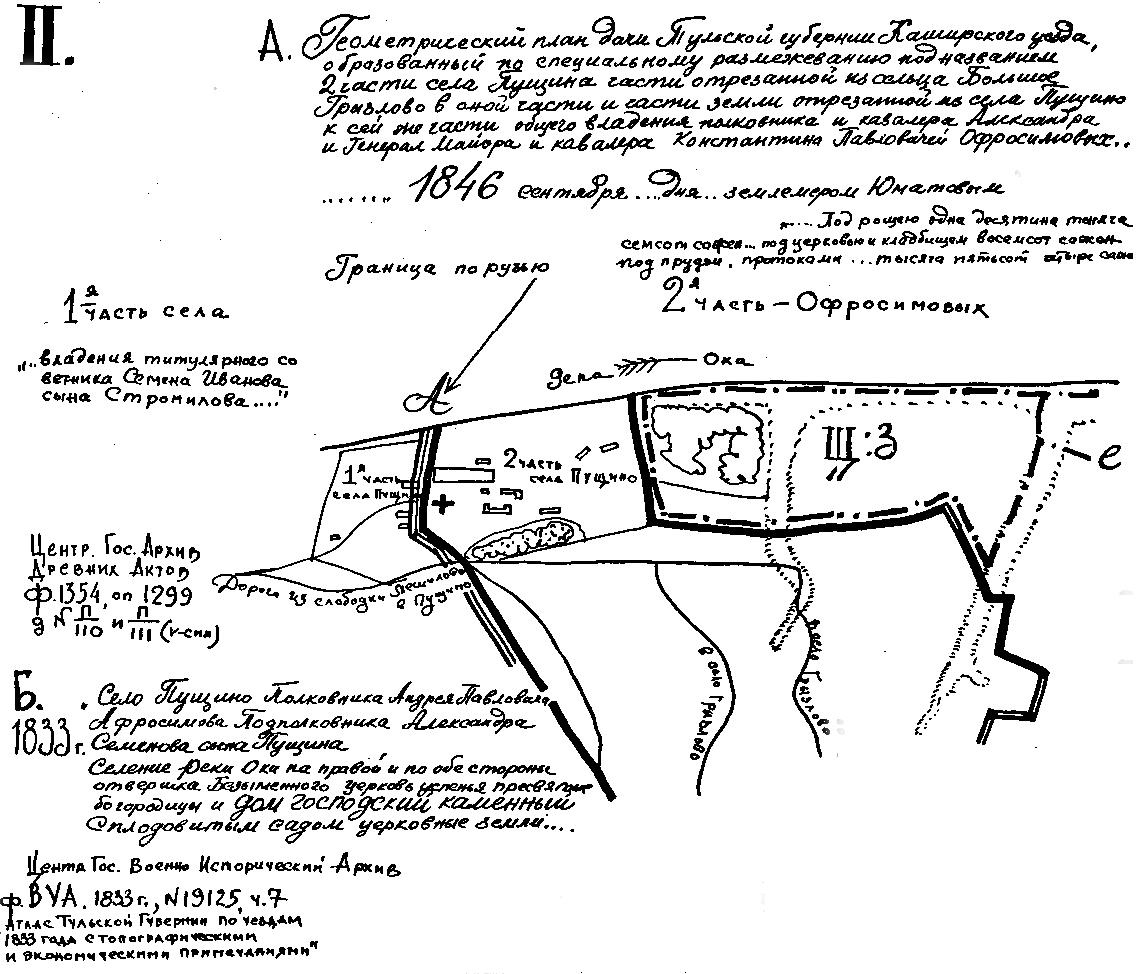 II.
А. Геометрический план дачи Тульской губернии Каширского уезда,
образованный по специальному размежеванию под названием
2 части села Пущина части отрезанной из сельца Большое
Грызлово в оной части и части земли отрезанной из села Пущино
к сей же части общего владения полковника и кавалера Александра
и Генерал Майора и кавалера Константина Павловичей Офросимовых..
....... 1846 сентября ... дня .. землемером Юматовым
.... Под рощею одна десятина тысяча
семсот сажен... под церковью и кладбищем восемсот сажен
под прудом, протоками ... тысяча пятьсот четыре
Граница по ручью
1я часть села
2я часть – Офросимовых
„..владения титулярного со
ветника Семена Иванова
сына Стромилова...."
река Ока
А
1я часть
села Пущино
2 часть
села Пущино
Щ:3
е
Центр. Гос. Архив
Древних Актов
ф. 1354, оп 1299
д N П/110 и П/111 (v-син)
Дорога из слободки
в Пущино
в село Грызлово
в село Грызлово
Б. . Село Пущино Полковника Андрея Павловича
1833 г. Афросимова Подполковника Александра
Семенова сына Пущина
Селение реки Оки на правой и по обе стороны
отвершка Безыменного церковь успенья пресвятые
богородицы и дом господский каменный
с плодовитым садом церковные земли....
Центра Гос. Военно Исторический Архив
ф. ВУА. 1833 г., N 19125, ч. 7
Атлас Тульской Губернии по уездам
1833 года с топографическими
и экономическими примечаниями"